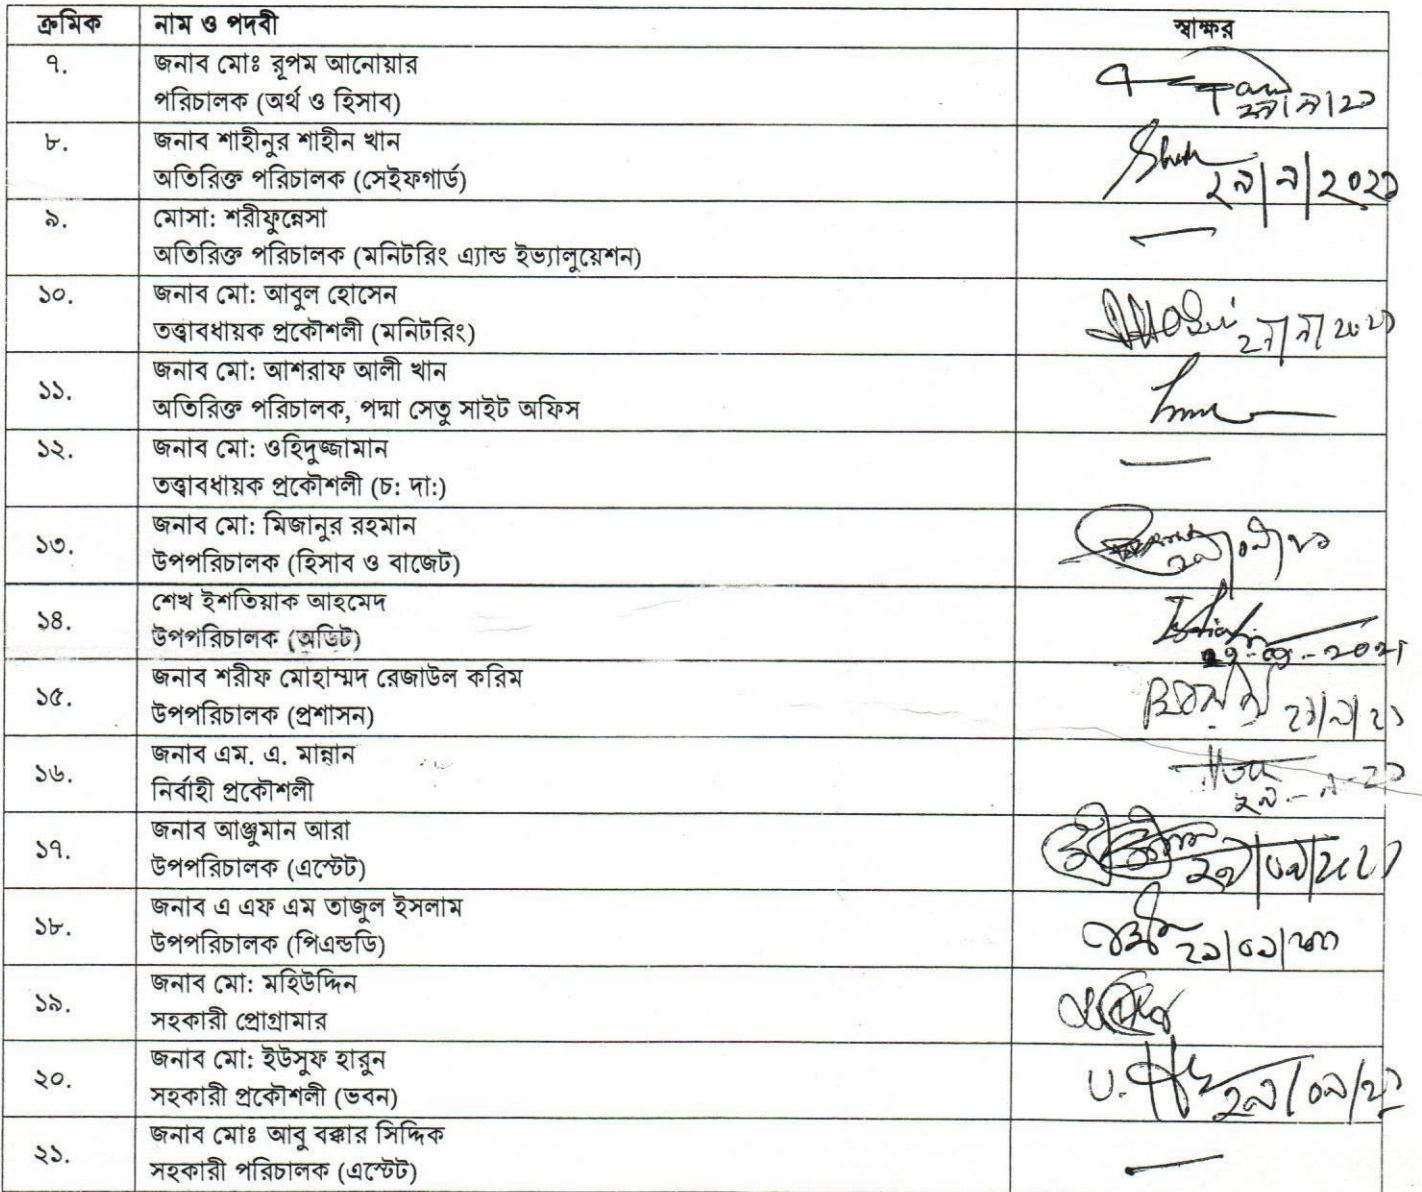 ক্রমিক নাম ও পদবী স্বাক্ষর
৭. জনাব মোঃ রূপম আনোয়ার
পরিচালক (অর্থ ও হিসাব)
২৯|৯|২১
৮. জনাব শাহীনুর শাহীন খান
অতিরিক্ত পরিচালক (সেইফগার্ড)
২৯|৯|২০২১
৯. মোসা: শরীফুন্নেসা
অতিরিক্ত পরিচালক (মনিটরিং এ্যান্ড ইভ্যালুয়েশন)
১০. জনাব মো: আবুল হোসেন
তত্ত্বাবধায়ক প্রকৌশলী (মনিটরিং)
২৯|৯|২০২১
১১. জনাব মো: আশরাফ আলী খান
অতিরিক্ত পরিচালক, পদ্মা সেতু সাইট অফিস
১২. জনাব মো: ওহিদুজ্জামান
তত্ত্বাবধায়ক প্রকৌশলী (চ: দা:)
১৩. জনাব মো: মিজানুর রহমান
উপপরিচালক (হিসাব ও বাজেট)
২৯|০৯|২১
১৪. শেখ ইশতিয়াক আহমেদ
উপপরিচালক (অডিট)
১৫. জনাব শরীফ মোহাম্মদ রেজাউল করিম
উপপরিচালক (প্রশাসন)
২৯|৯|২১
১৬. জনাব এম. এ. মান্নান
নির্বাহী প্রকৌশলী
২৯-৯-২১
১৭. জনাব আঞ্জুমান আরা
উপপরিচালক (এস্টেট)
২৯|০৯|২০২১
১৮. জনাব এ এফ এম তাজুল ইসলাম
উপপরিচালক (পিএন্ডডি)
২৯|০৯|২০২১
১৯. জনাব মো: মহিউদ্দিন
সহকারী প্রোগ্রামার
২০. জনাব মো: ইউসুফ হারুন
সহকারী প্রকৌশলী (ভবন)
২৯|০৯|২১
২১. জনাব মোঃ আবু বক্কার সিদ্দিক
সহকারী পরিচালক (এস্টেট)